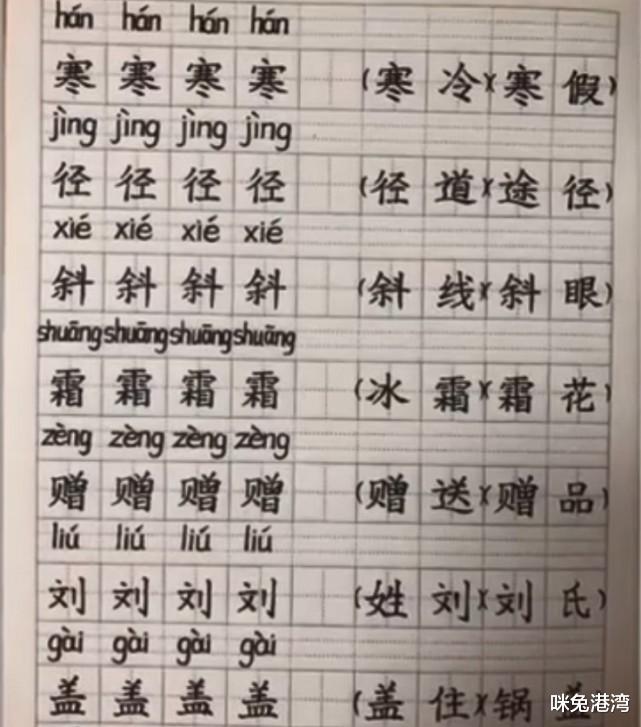 hán hán hán hán
寒 寒 寒 寒 (寒 冷)(寒 假)
jìng jìng jìng jìng
径 径 径 径 (径 道)(途 径)
xié xié xié xié
斜 斜 斜 斜 (斜 线)(斜 眼)
shuāng shuāng shuāng shuāng
霜 霜 霜 霜 (冰 霜)(霜 花)
zèng zèng zèng zèng
赠 赠 赠 赠 (赠 送)(赠 品)
liú liú liú liú
刘 刘 刘 刘 (姓 刘)(刘 氏)
gài gài gài gài
盖 盖 盖 盖 (盖 住)(锅 盖
咪兔港湾